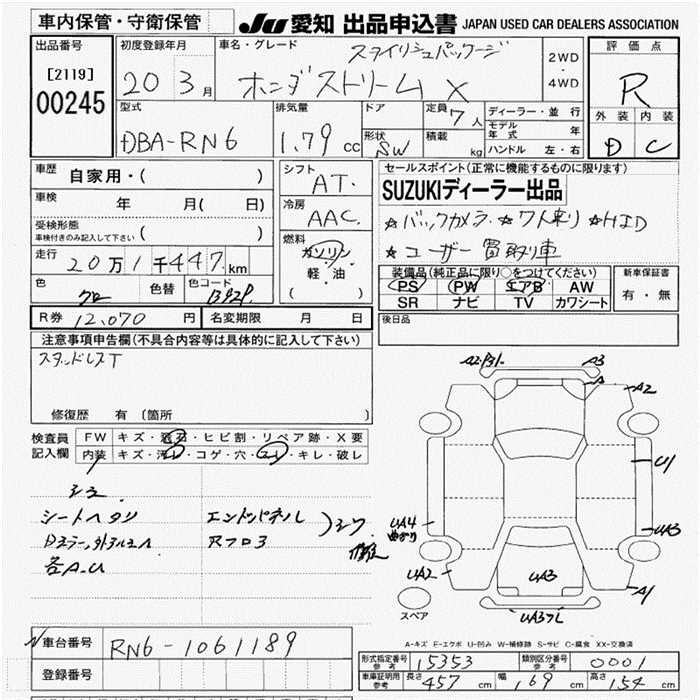 車内保管・守衛保管
JU 愛知 出品申込書 JAPAN USED CAR DEALERS ASSOCIATION
出品番号
[2119]
00245
初度登録年月
20 3月
車名・グレード
スタイリッシュパッケージ
ホンダストリーム X
2WD
・
4WD
評価点
R
外装 内装
D C
型式
DBA-RN6
排気量
1.79 cc
ドア
形状
SW
定員
7人
積載
kg
ディーラー・並行
モデル年式 年
ハンドル 左・右
車歴
自家用・( )
車検
年 月( 日)
受検形態
車検付きのみ記入して下さい ( )
走行
20万1千447km
色
クロ
色替
色コード
B92P
シフト
AT.
冷房
AAC.
燃料
ガソリン
軽・油
( )
セールスポイント(正常に機能するものに限ります)
SUZUKIディーラー出品
☆バックカメラ ☆7人乗り ☆HID
☆ユーザー買取り車
装備品(純正品に限り○をつけてください)
PS PW エアB AW
SR ナビ TV カワシート
新車保証書
有・無
R券 12,070 円
名変期限 月 日
後日品
注意事項申告欄(不具合内容等は具体的に記入して下さい)
スタッドレスT
修復歴 有 〔箇所 〕
検査員
記入欄
FW キズ・飛石・ヒビ割・リペア跡・X要
内装 キズ・汚レ・コゲ・穴・スレ・キレ・破レ
シミ
シートヘタリ
各A.U
エンドパネル
Rフロア
シワ
A3
A
A2
U1
UA4
UA3
UA2
UA3
A1
スペア
A-キズ E-エクボ U-凹み W-補修跡 S-サビ C-腐食 XX-交換済
車台番号 RN6-1061189
登録番号
形式指定番号
参考
15353
類別区分番号
参考
0001
車庫証明用
参考
長さ 457 cm 幅 169 cm 高さ 154 cm